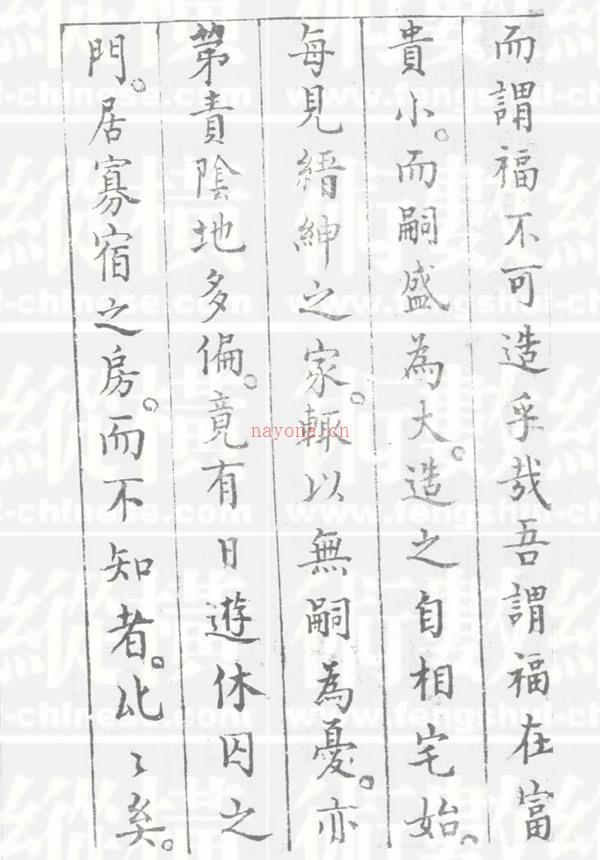 而謂福不可造乎哉吾謂福在富
貴小。而嗣盛為大。造之自相宅始。
每見縉紳之家。輒以無嗣為憂。亦
第責陰地多偏。竟有日遊休囚之
門。居寡宿之房。而不知者。比〻矣。
nayona.cn